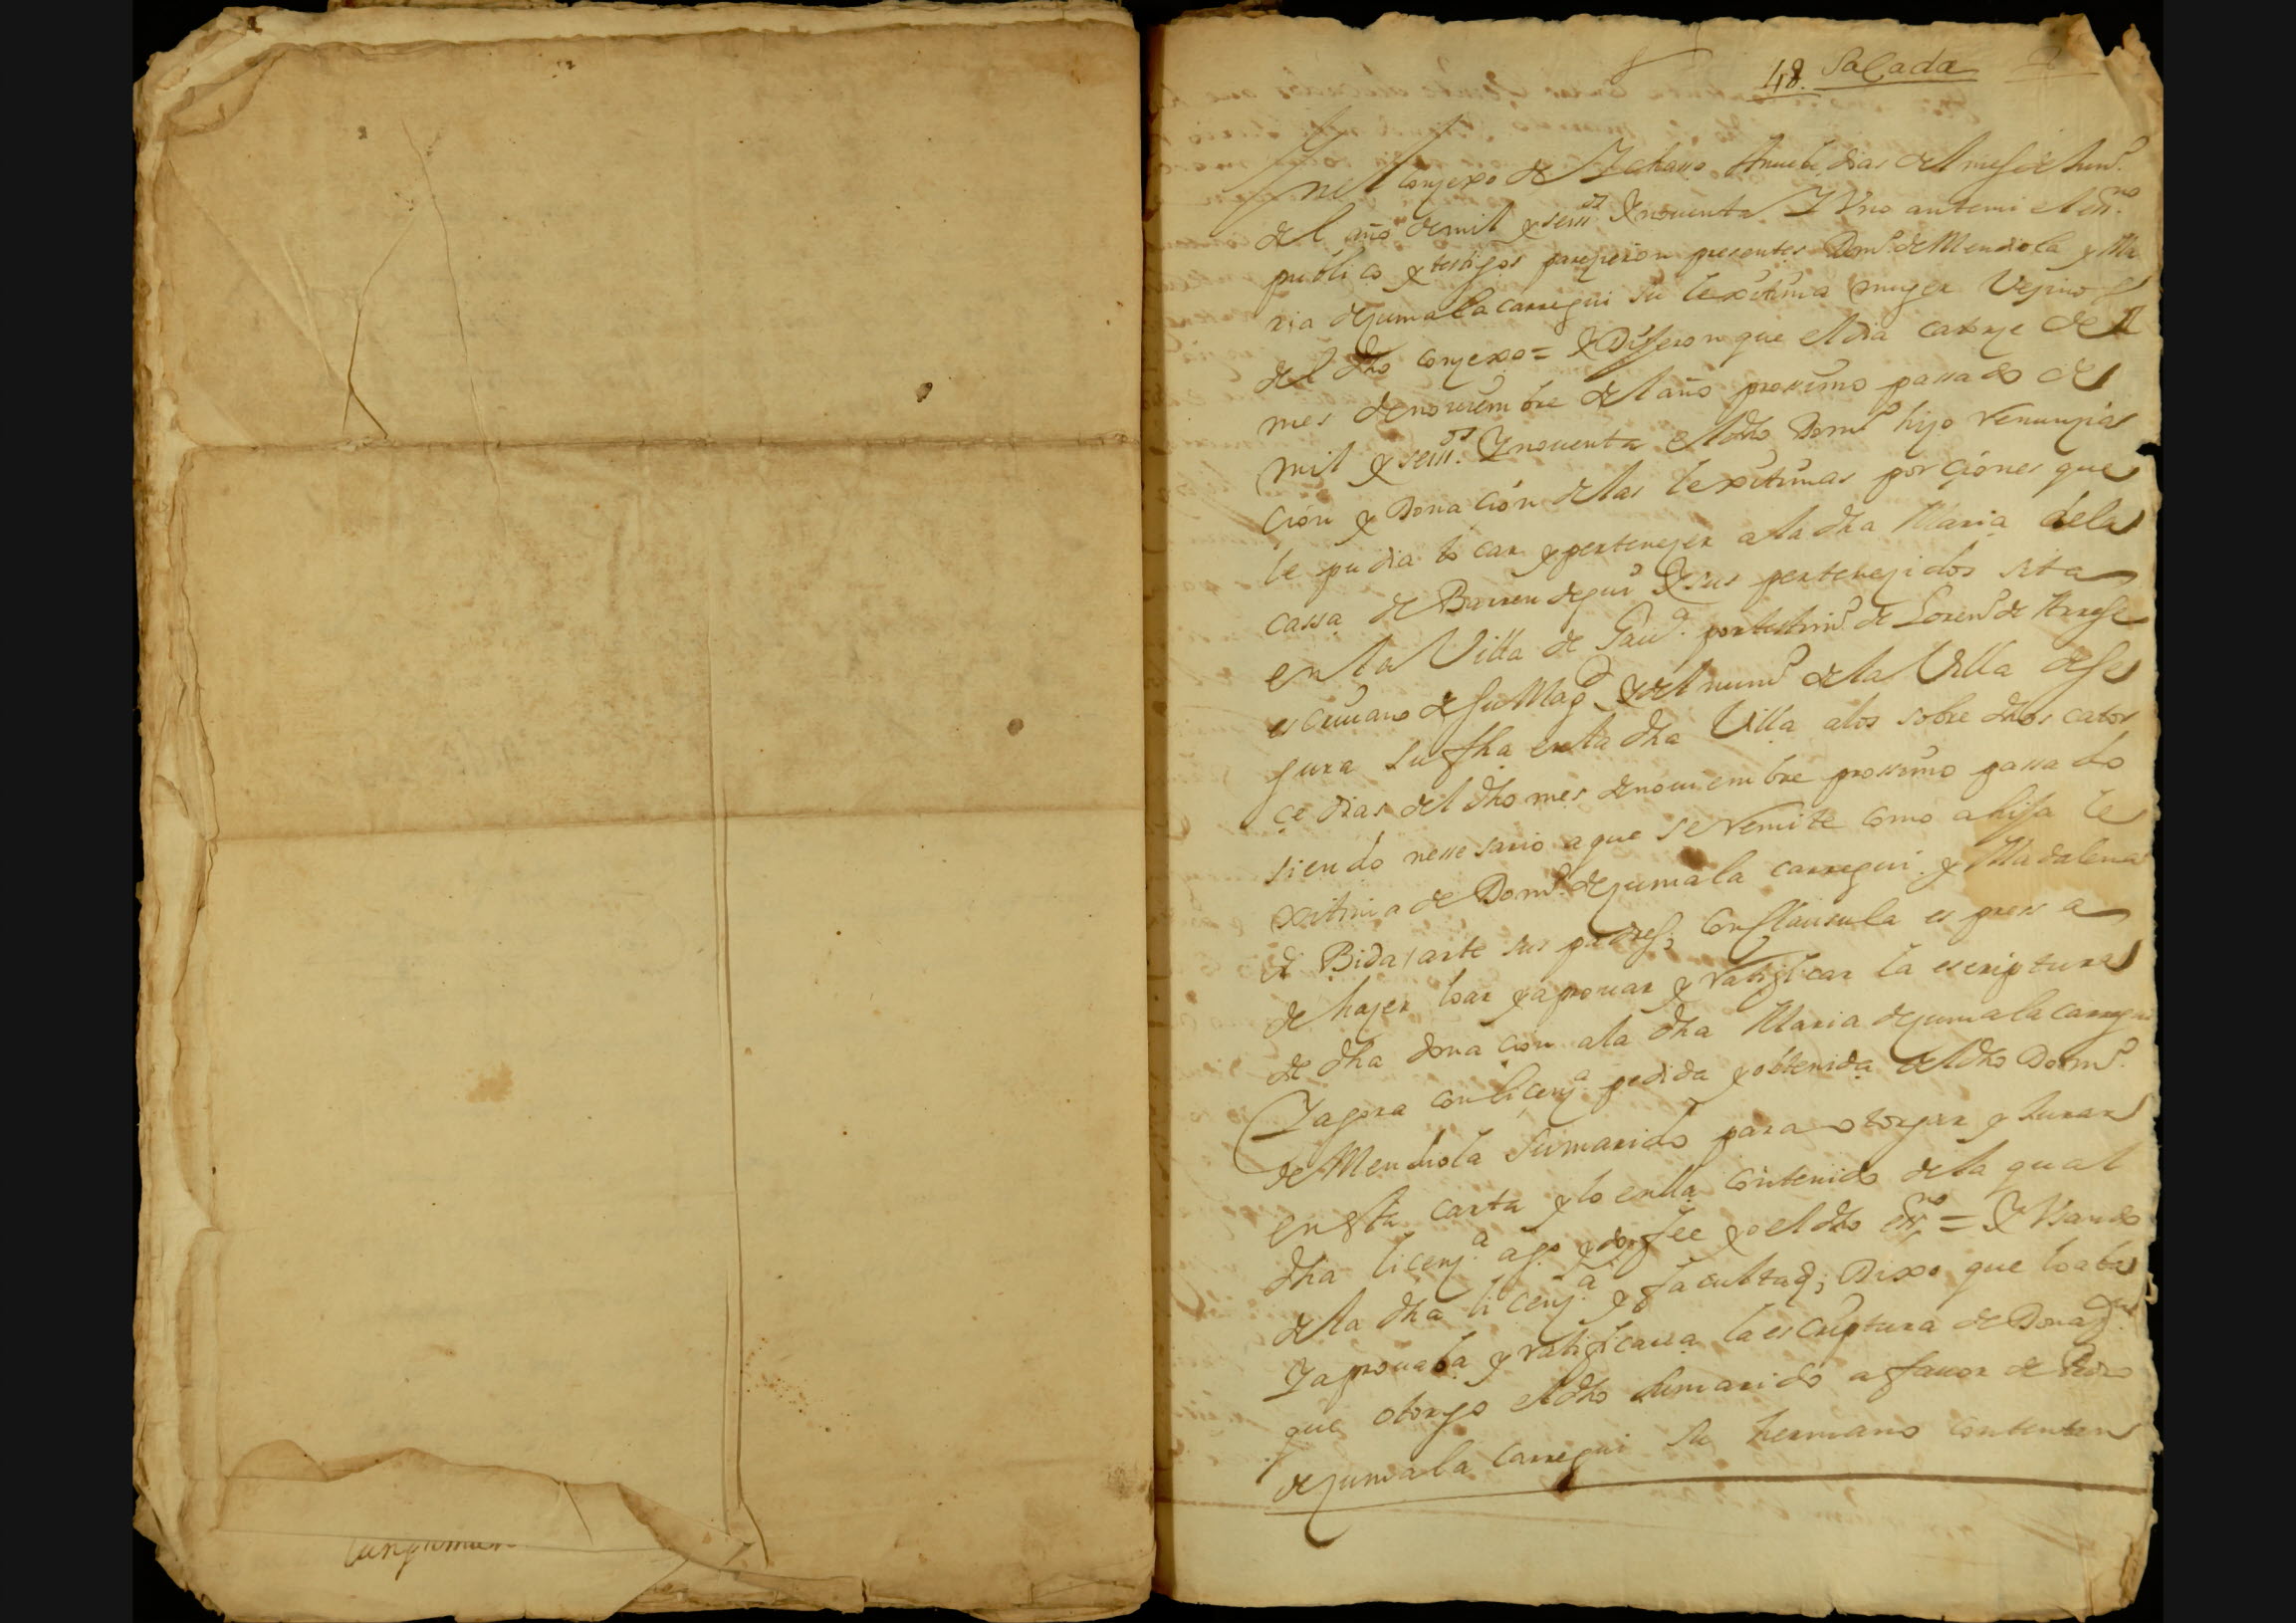 48. Sacada
En el Conzexo de Ichasso A nueve dias del mes de Hen.º
del año de mil y seiss.os y nouenta Y Vno ante mi el ess.no
publico y testigos pareçieron presentes Dom.º de Mendiola y Ma
ria de çumalacarregui su lexitima muger Veçinos
del dho conzexo = Y Dijeron que el dia catorze del
mes de nouiembre del año prossimo passado de
mil y seiss.os Y nouenta el dho Dom.º hizo renunçia
cion y Donacion de las lexitimas porçiones que
le pudia tocar y perteneçer a la dha Maria de la
cassa de Barrendegui y sus perteneçidos sita
en la Villa de Gau.ª por testim.º de Loren.º de Arrese
escriuano de su Mag.d y del num.º de la Villa de Se
gura su fha en la dha Villa a los sobre dhos cator
çe dias del dho mes de nouiembre prossimo passado
siendo nessesario a que se remite como a hija le
xitima de Dom.º de çumalacarregui y Madalena
de Bidasarte sus padres; con clausula espressa
de hazer loar y aprouar y ratificar la escriptura
de dha donacion a la dha Maria de çumalacarregui
Y agora con liçenç.ª pedida y obtenida del dho Dom.º
de Mendiola su marido para otorgar y Jurar
en esta carta y lo en ella contenido de la qual
dha licenç.ª a q.º y doy fee yo el dho ess.no = Y Vsando
de la dha licenç.ª y facultad; Dixo que loaba
Y aprouaba y ratificaua la escriptura de Donaç.on
que otorgo el dho su marido a fauor de Pedro
de çumalacarregui su hermano contenten